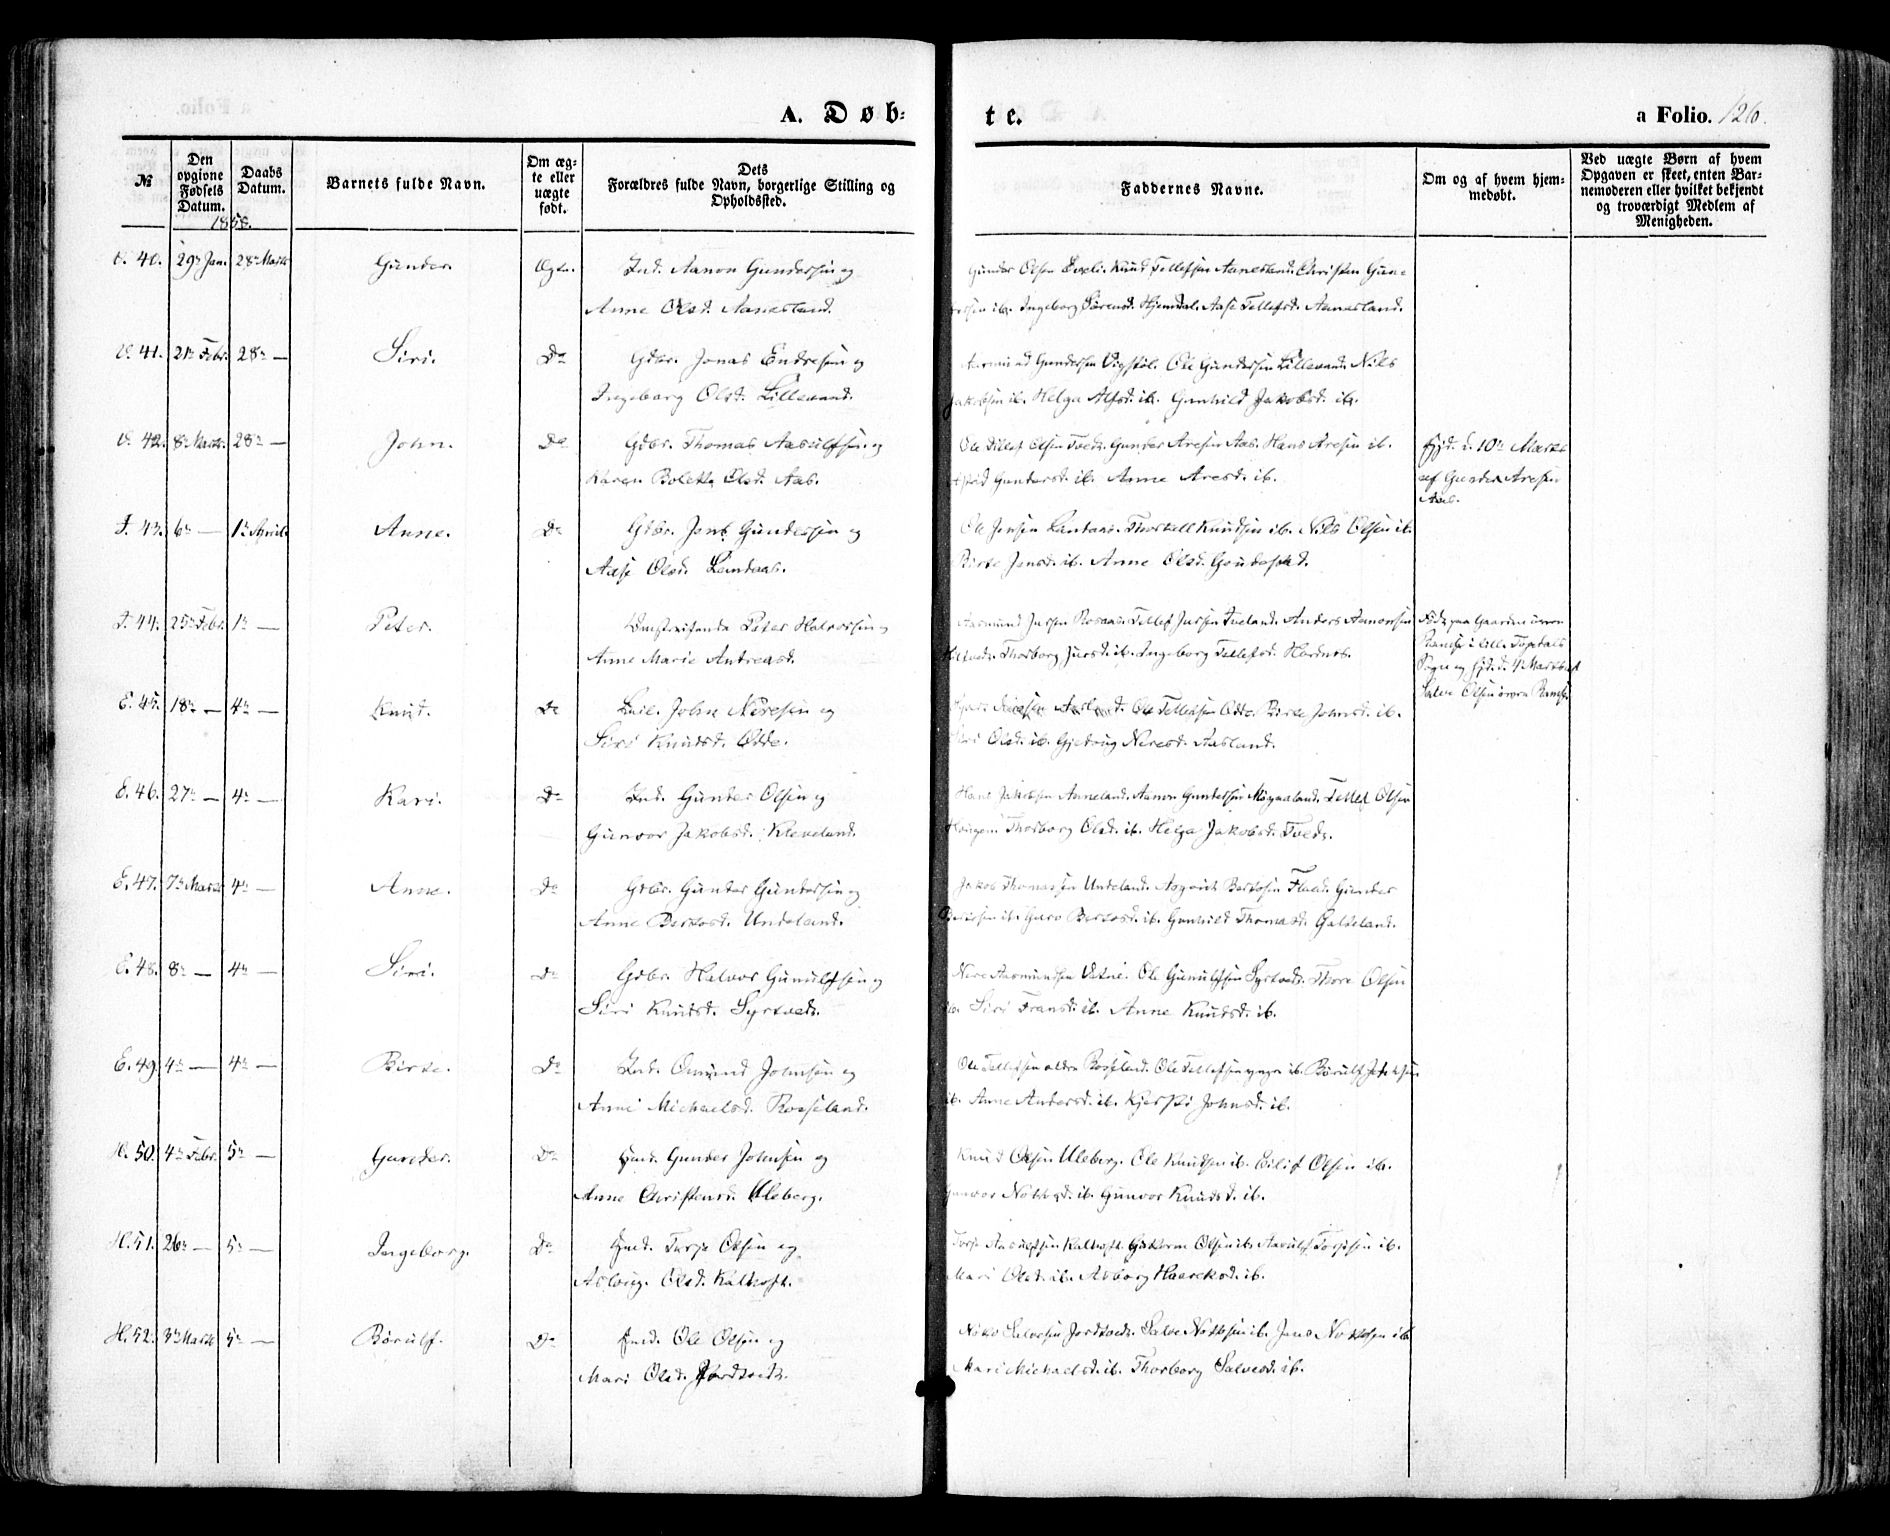 A. Døb-
te.
a Folio. 126.
№
Den opgivne Fødsels Datum.
Daabs Datum.
Barnets fulde Navn.
Om ægte eller uægte født.
Dets
Forældres fulde Navn, borgerlige Stilling og
Opholdssted.
Faddernes Navne.
Om og af hvem hjemmedøbt.
Ved uægte Børn af hvem
Opgaven er skeet, enten Barnemoderen eller hvilket bekjendt
og troværdigt Medlem af
Menigheden.
40. 29de Jan. 28de Marts Gunder. Ægte. Ind. Aanon Gundersen og
Anne Olsd. Aanesland.
Gunder Olsen Knud Tellefsen Aanesland. Christen Gun-
dersen ib. Ingeborg Sørensd. Hjemdal. Aase Tellefsd. Aanesland.
41. 21de Febr. 28de — Siri. Do Gdbr. Jonas Endresen og
Ingeborg Olsd. Lillevand.
Aasmund Gundersen Vigstøl. Ole Gundersen Lillevand. Nils
Jakobsen ib. Helga Alfsd. ib. Gunhild Jakobsd. ib.
42. 8de Marts. 28de — John. Do Gdbr. Thomas Aasulfsen og
Karen Bolette Olsd. Aas.
Ole Tellef Olsen Tvede. Gunder Aresen Aas. Hans Aresen ib.
Gundersd. ib. Anne Aresd. ib.
hjd. d. 10de Marts
af Gunder Aresen
Aas.
43. 6te — 1te April. Anne. Do Gdbr. Jens Gundersen og
Aase Olsd. Landaas.
Ole Jensen Landaas. Thorkell Knudsen ib. Nils Olsen ib.
Birte Jensd. ib. Anne Olsd.
44. 25de Febr. 1te — Peter. Peter Halvorsen og
Anne Marie Andreasd.
Aasmund Jursen Rosaas. Tellef Jursen Tveland. Anders Aanonsen
Thorborg Jursd. ib. Ingeborg Tellefsd.
Født paa Gaarden
i Lille Topdals
Sogn og hjd. d. 4de Marts af
Salve Olsen
E. 45. 18de — 4de — Knud. Do John Neresen og
Siri Knudsd. Odde.
Ole Tellefsen Odde. Birte Johnsd. ib.
Siri Olsd. ib. Gjedvig Neresd. Aasland.
E. 46. 27de — 4de — Kari. Do Ind. Gunder Olsen og
Gunvor Jakobsd. Kleveland.
Hans Jakobsen Aaneland. Aanon Gundersen Tellef Olsen
Haugen. Thorborg Olsd. ib. Helga Jakobsd. Tvede.
E. 47. 7de Marts 4de — Anne. Do Gdbr. Gunder Gundersen og
Anne Bertosd. Undeland.
Jakob Thomassen Undeland. Bertosen Flaa. Gunder
Bertosen ib. Guro Bertosd. ib. Gunhild Thomasd. Galteland.
E. 48. 8de — 4de — Siri. Do Gdbr. Halvor Gunulfsen og
Siri Knudsd. Syrtveit.
Nere Aasmundsen Vatne. Ole Gunulfsen Syrtveit. Thore Olsen
ib. Siri Fransd. ib. Anne Knudsd. ib.
E. 49. 4de — 4de — Birte. Do Ind. Omund Johnsen og
Anne Michaelsd. Rosseland.
Ole Tellefsen ældre Rosseland. Ole Tellefsen yngre ib. Børulf
ib. Anne Andersd. ib. Kjersti Johnsd. ib.
H. 50. 4de Febr. 5te — Gunder. Do Ind. Gunder Johnsen og
Anne Christensd. Uleberg.
Knud Olsen Uleberg. Ole Knudsen ib. Eilif Olsen ib.
Gunvor ib. Gunvor Knudsd. ib.
H. 51. 26de — 5te — Ingeborg. Do Ind. Terje Olsen og
Aslaug Olsd. Kalhoft.
Terje Aasulfsen Kalhoft. Guttorm Olsen ib. Aasulf Terjesen ib.
Mari Olsd. ib. Asborg ib.
H. 52. 3de Marts 5te — Børulf. Do Ind. Ole Olsen og
Mari Olsd. Jordtveit.
Salvesen Jordtveit. Salve ib. Jens ib.
Mari Michaelsd. ib. Thorborg Salvesd. ib.